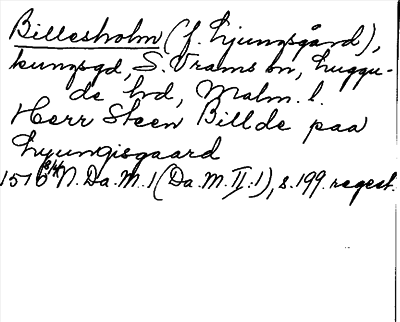 Billesholm (f. Ljungsgård),
kungsgd, S. Vrams sn, Luggu-
de hd, Malm. l.
Herr Steen Billde paa
Lyungisgaard
1516 N. Da. M. 1 (Da. M. II:1), s. 199. regest.